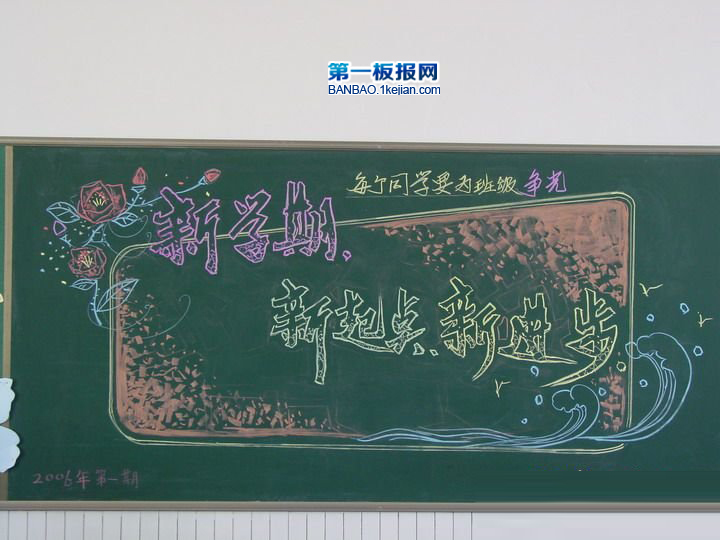 第一板报网
BANBAO.1kejian.com
每个同学要为班级争光
新学期、
新起点、新进步
2006年第一期